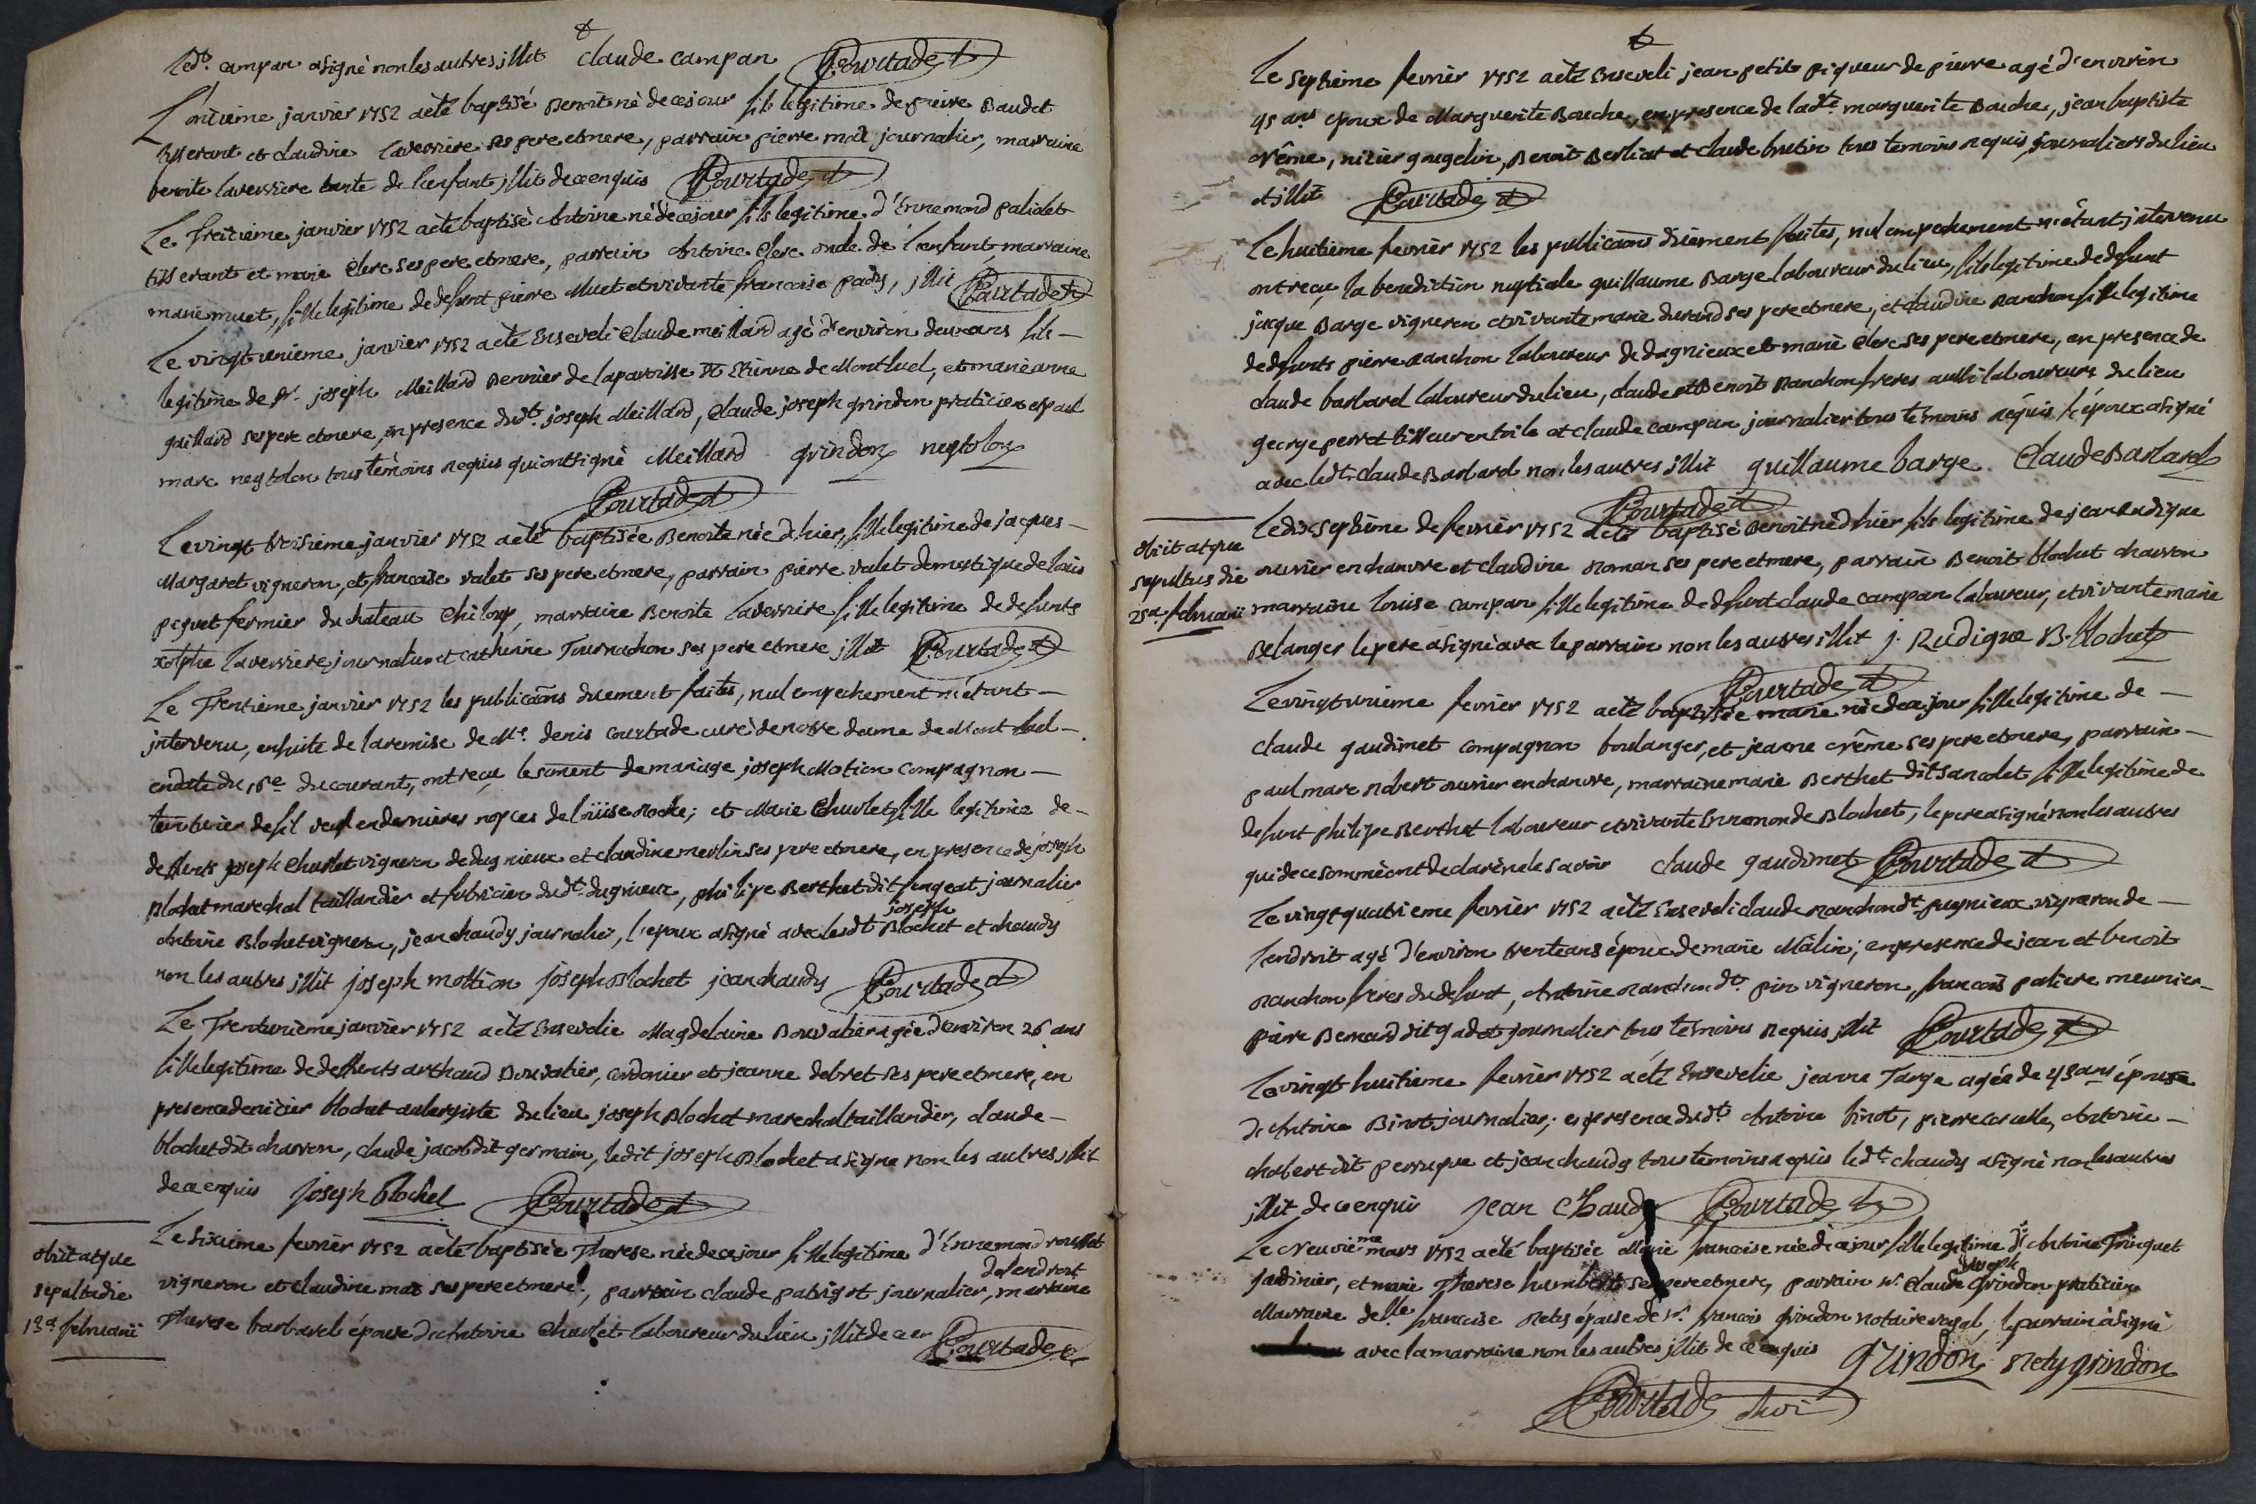 Ledt. campan a signé non les autres illit claude campan Courtade ct
L'onzieme janvier 1752 a eté baptisé Benoit né de ce jour fils legitime de pierre Baudet
tisserant et claudine laverriere ses pere et mere, parrain pierre mat journalier, marraine
benoite laverriere tante de l'enfant illit de ce enquis Courtade ct
Le treizieme janvier 1752 a eté baptisé Antoine né de ce jour fils legitime d'Ennemond paliolet
tisserant et marie Clerc ses pere et mere, parrain Antoine Clerc oncle de l'enfant, marraine
marie muet, fille legitime de defunt pierre Muet et vivante francoise padÿ, illit Courtade ct
Le vingt unieme janvier 1752 a eté Enseveli Claude meillard agé d'environ deux ans fils
legitime de sr. joseph Meillard Fermier de la paroisse St Etienne de Montluel, et marie anne
guillard ses pere et mere, en presence dudt. joseph Meillard, Claude joseph grindon praticien et paul
marc neytolon tous témoins requis qui ont signé Meillard grindon neytolon
Courtade ct
Le vingt troisieme janvier 1752 a eté baptisée Benoite née d'hier, fille legitime de jacques
Margaret vigneron, et francoise valet ses pere et mere, parrain pierre valet domestique de louis
pequet fermier du chateau Chiloup, marraine Benoite laverriere fille legitime de defunts
laverriere journalier et catherine Tournachon ses pere et mere illit Courtade ct
Le Trentieme janvier 1752 les publicaons duement faites, nul empechement n'étant
intervenu, ensuite de la remise de Mr. denis courtade curé de notre dame de Mont luel
en date du 16e du courant, ont reçu le sament de mariage joseph Motion compagnon
teinturier de fil veuf en dernieres nopces de loüise Roche; et Marie Churlet fille legitime de
defunts joseph Churlet vigneron de dagnieux et claudine merlin ses pere et mere, en presence de joseph
Blochet marechal taillandier et fabricien dudt. dagnieux, philipe Berthet dit fongeat journalier
joseph
Antoine Blochet vigneron, jean chaudy journalier, l'epoux a signé avec lesdt Blochet et chaudy
non les autres illit joseph mottion joseph Blochet jean chaudy Courtade ct
Le Trentunième janvier 1752 a eté Ensevelie Magdelaine Bouvatier agée d'environ 26 ans
fille legitime de defunts arthaud Bouvatier, cordonier et jeanne debret ses pere et mere, en
presence de nicier blochet aubergiste du lieu joseph Blochet marechal taillandier, claude
blochet dit charron, claude jacob dit germain, ledit joseph Blochet a signe non les autres illit
de ce enquis joseph blochet Courtade ct
Obiit atque
sepulta die
13a februarii
Le sixieme fevrier 1752 a eté baptisée Therese née de ce jour fille legitime d'Ennemond roussset
de l'endroit
vigneron et claudine mat ses pere et mere, parrain claude patrigot journalier, marraine
Therese barbarel épouse d'Antoine Churlet laboureur du lieu illit de ce en Courtade ct
Le Septieme fevrier 1752 a eté Enseveli jean petit piqueur de pierre agé d'environ
45 ans epoux de Marguerite Bouche, en presence de ladte. marguerite Bouche, jean baptiste
crême, nicier gougelin, Benoit Berliat et claude brutin tous temoins requis journaliers du lieu
et illit Courtade ct
Le huitieme fevrier 1752 les publicaons duement faites, nul empechement n'étant intervenu
ont reçu la benediction nuptiale guillaume Barge laboureur du lieu, fils legitime de defunt
jaque Barge vigneron et vivante marie durand ses pere et mere, et claudine Ranchon fille legitime
de defunts pierre Ranchon laboureur de dagnieux et marie Clerc ses pere et mere, en presence de
claude barbarel laboureur du lieu, claude et Benoit Ranchon freres aussi laboureurs du lieu
george perret tilleur en toile et claude campan journalier tous témoins requis, l'époux a signé
avec ledt. claude Barbarel non les autres illit guillaume barge Claude Barbarel
Courtade ct
Obiit atque
sepultus die
25a februarii
Le dix septieme de fevrier 1752 a eté baptisé Benoit né d'hier fils legitime de jean Rudigue
ouvrier en chanvre et claudine Roman ses pere et mere, parrain Benoit blochet charron
marraine louise campan fille legitime de defunt claude campan laboureur, et vivante marie
Belanger le pere a signé avec le parrain non les autres illit j. Rudigue B. Blochet
Courtade ct
Le vingt unieme fevrier 1752 a eté baptisée marie née de ce jour fille legitime de
claude gaudimet compagnon boulanger, et jeanne crême ses pere et mere, parrain
paul marc Robert ouvrier en chanvre, marraine marie Berthet dit sancolet fille legitime de
defunt philipe Berthet laboureur et vivante Ennemonde Blochet, le pere a signé non les autres
qui de ce sommés ont declaré ne le savoir claude gaudimet Courtade ct
Le vingt quatrieme fevrier 1752 a eté Enseveli claude Ranchon dt. pugnieux vigneron de
l'endroit agé d'environ trente ans époux de marie Mâlin; en presence de jean et benoit
Ranchon freres du defunt, Antoine Ranchon dt. pin vigneron, francois patiere meunier
pierre Bernard dit gadot journalier tous temoins requis illit Courtade ct
Le vingt huitieme fevrier 1752 a eté Ensevelie jeanne Targe agée de 43 ans épouse
d'Antoine Binot journalier; en presence dudt. Antoine binot, pierre Antoine
chabert dit perruque et jean chaudy tous temoins requis ledt. chaudy a signé non les autres
illit de ce enquis jean Chaudy Courtade ct
Le Neuvieme mars 1752 a eté baptisée Marie francoise née de ce jour fille legitime d'Antoine Trinquet
joseph
jardinier, et marie Therese humbert ses pere et mere, parrain sr. Claude Grindon praticien
Marraine delle. francoise Nety épouse de sr. francois grindon notaire royal, le parrain a signé
avec la marraine non les autres illit de ce enquis Grindon Nety grindon
Courtade curé